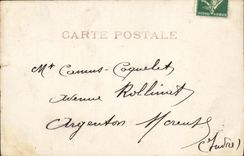 CARTE POSTALE
Mr Camus-Coquelet
Avenue Rollinat
Argenton s/ Creuse
(Indre)